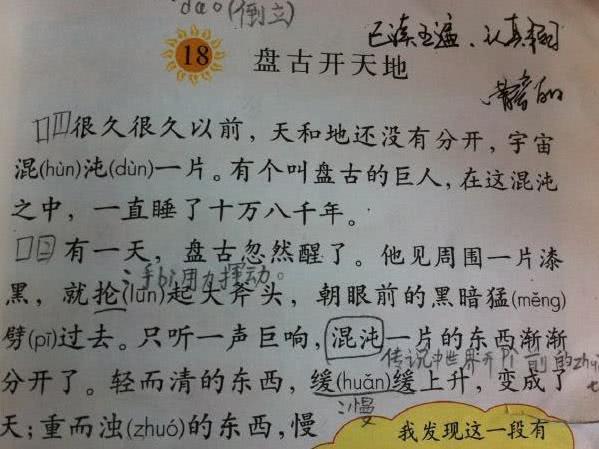 dào(倒立)
已读五遍、认真
18 盘古开天地
很久很久以前，天和地还没有分开，宇宙
混(hùn)沌(dùn)一片。有个叫盘古的巨人，在这混沌
之中，一直睡了十万八千年。
有一天，盘古忽然醒了。他见周围一片漆
手bì用力挥动。
黑，就抡(lūn)起大斧头，朝眼前的黑暗猛(měng)
劈(pī)过去。只听一声巨响，混沌一片的东西渐渐
传说中世界开pì前的zhuàng
分开了。轻而清的东西，缓(huǎn)缓上升，变成了
慢
天；重而浊(zhuó)的东西，慢
我发现这一段有